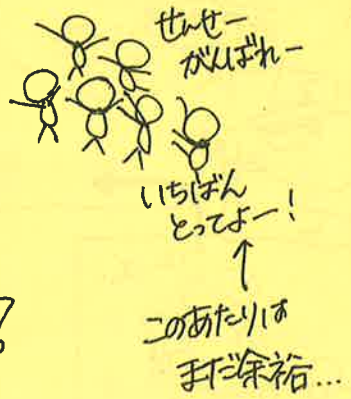 せんせー
がんばれー
いちばん
とってよー!
↑
このあたりは
まだ余裕...
?